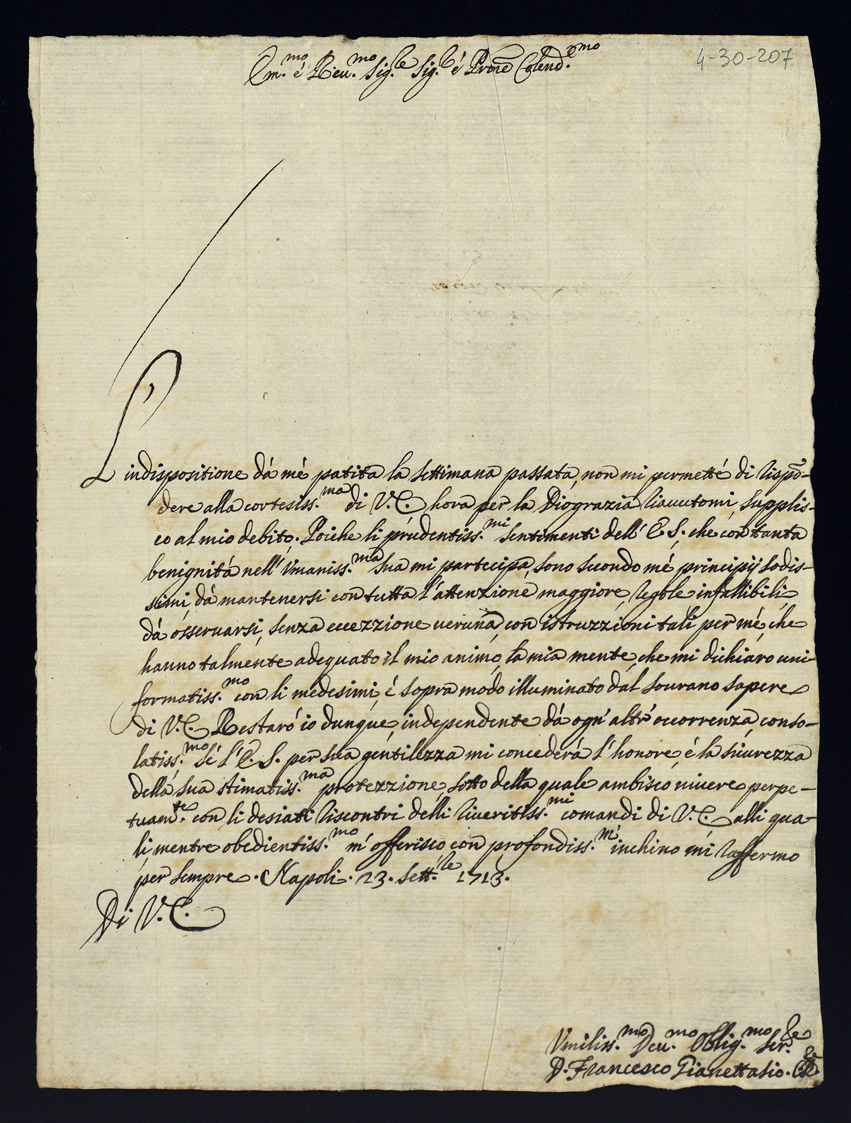 Em.mo é Reu.mo Sig.re Sig.r é Prone Colend.mo
4-30-207
L'indispositione dá mé patita la settimana passata, non mi permetté di rispõ-
dere alla cortesiss.ma di V.E. hora per la Diograzia riauutomi supplis-
co al mio debito. Poiche li prudentiss.mi sentimenti dell'E.S. che con tanta
benignitá nell'Vmaniss.ma sua mi partecipa sono secondo mé principij sodis-
simi dá mantenersi con tutta l'attenzione maggiore, regole infallibili
dá osseruarsi, senza eccezzione veruna con istruzzioni tali per mé che
hanno talmente adequato il mio animo, la mia mente che mi dichiaro uni-
formatiss.mo con li medesimi, é sopra modo illuminato dal sourano sapere
di V.E. Restaró io dunque independente dá ogn'altr'occorrenza conso-
latiss.mo sé l'E.S. per sua gentilezza mi concederá l'honore é la sicurezza
della sua stimatiss.ma protezzione sotto della quale ambisco uiuere perpe-
tuam.te con li desiati riscontri delli riueritiss.mi comandi di V.E. alli qua-
li mentre obedientiss.mo m'offerisco con profondiss.mo inchino mi raffermo
per sempre. Napoli. 23. Sett.re 1713.
Di V.E.
Vmiliss.mo Deu.mo Oblig.mo Ser.re
D. Francesco Gianettasio.